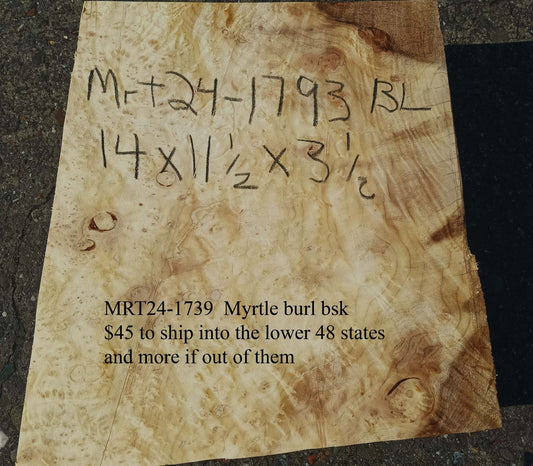 Mrt24-1793 BL
14 x 11 1/2 x 3 1/2
MRT24-1739 Myrtle burl bsk
$45 to ship into the lower 48 states
and more if out of them